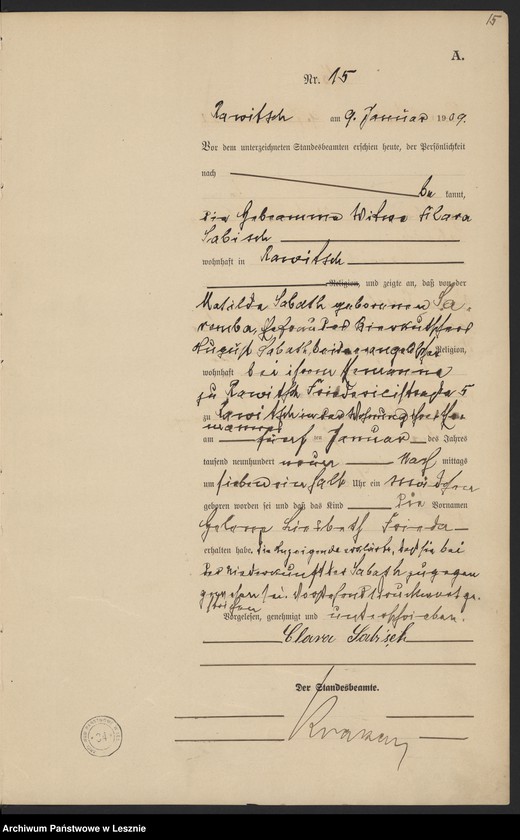 15
A.
Nr. 15
Rawitsch am 9. Januar 1909.
Vor dem unterzeichneten Standesbeamten erschien heute, der Persönlichkeit
nach be kannt,
die Hebeamme Witwe Klara
Sabisch
wohnhaft in Rawitsch
Religion, und zeigte an, daß von der
Matilda Sabath geborenen
Ehefrau des Bierkutschers
August Sabath, beide evangelischer Religion,
wohnhaft bei ihrem Ehemanne
zu Rawitsch Friedrichstraße 5
zu Rawitsch in der Wohnung
am fünf ten Januar des Jahres
tausend neunhundert neun Nach mittags
um sieben ein halb Uhr ein Mädchen
geboren worden sei und daß das Kind die Vornamen
Helene Lisbeth Frieda
erhalten habe. Die Anzeigende erklärte, daß sie bei
der Niederkunft der Sabath zugegen
gewesen sei. Vorstehend Druckwort ge-
strichen
Vorgelesen, genehmigt und unterschrieben.
Clara Sabisch
Der Standesbeamte.
24
Archiwum Państwowe w Lesznie